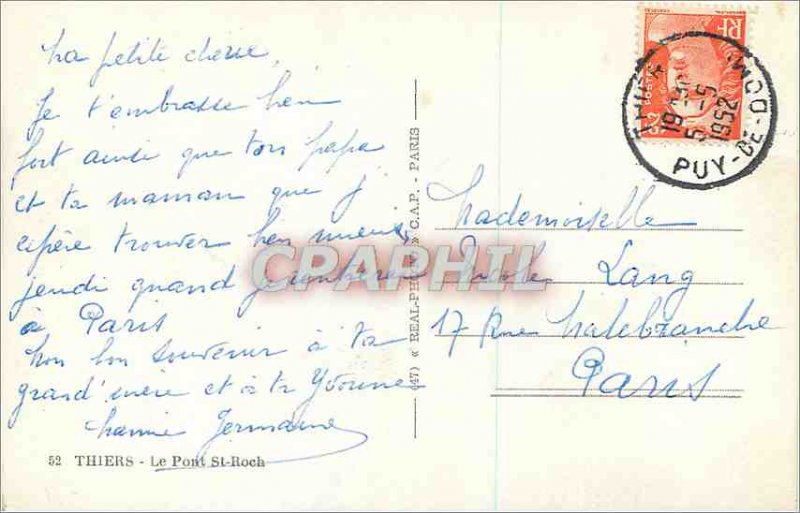 Ma petite chérie,
Je t'embrasse bien
fort ainsi que ton papa
et ta maman que j'
espère trouver bien mieux
jeudi quand je rentrerai
à Paris
Mon bon souvenir à ta
grand'mère et à ta Yvonne
Germaine
52 THIERS - Le Pont St-Roch
(47) « REAL-PHOTO » C.A.P. - PARIS
RF
POSTES
THIERS
19
5 -5
1952
PUY-DE-DOME
Mademoiselle
Nicole Lang
17 Rue Malebranche
Paris
CPAPHIL